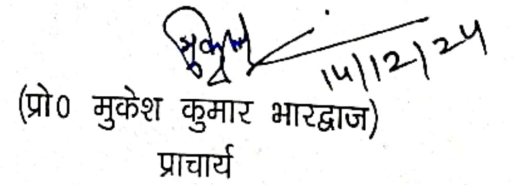 मुकेश 14/12/24
(प्रो0 मुकेश कुमार भारद्वाज)
प्राचार्य